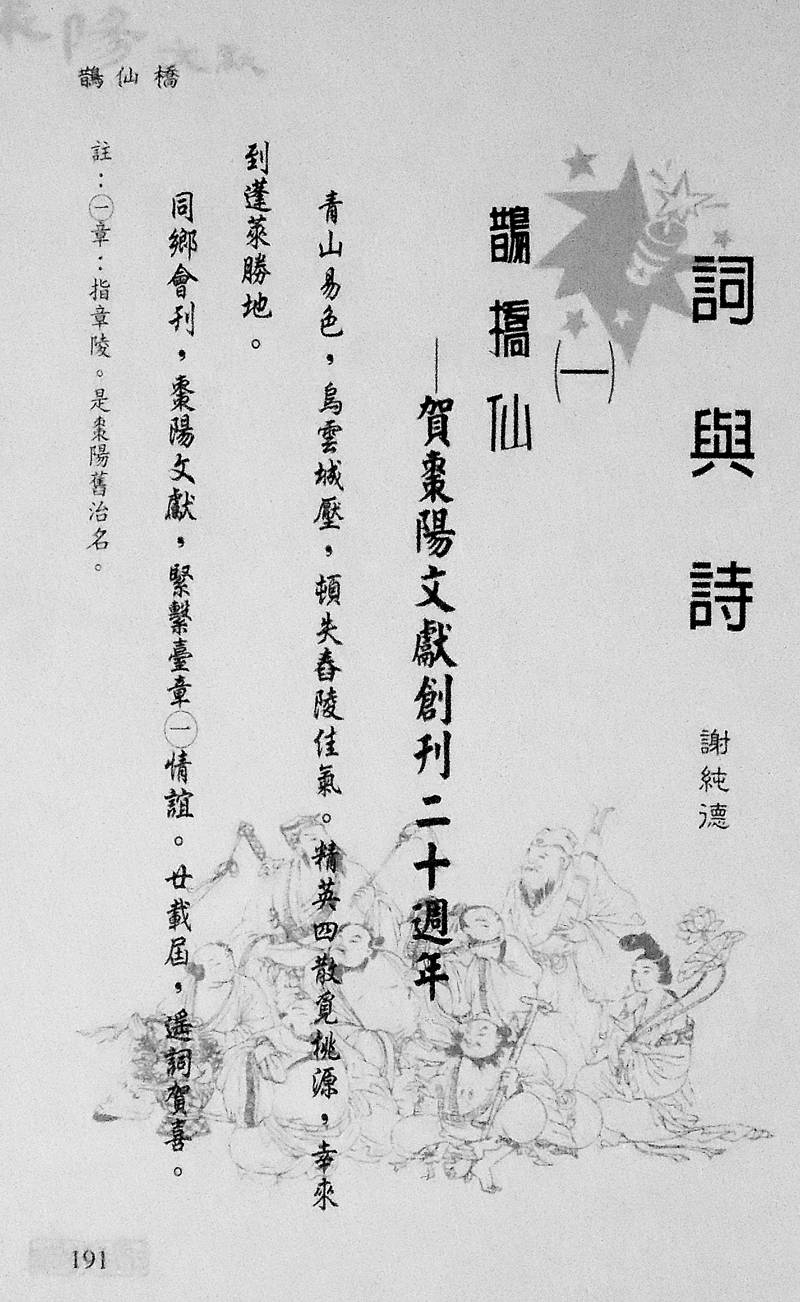 鵲仙橋
詞與詩
謝純德
(一)
鵲橋仙
—賀棗陽文獻創刊二十週年
青山易色，烏雲城壓，頓失舂陵佳氣。精英四散覓桃源，幸來
到蓬萊勝地。
同鄉會刊，棗陽文獻，緊繫臺章㊀情誼。廿載屆，遥詞賀喜。
註：㊀章：指章陵。是棗陽舊治名。
191